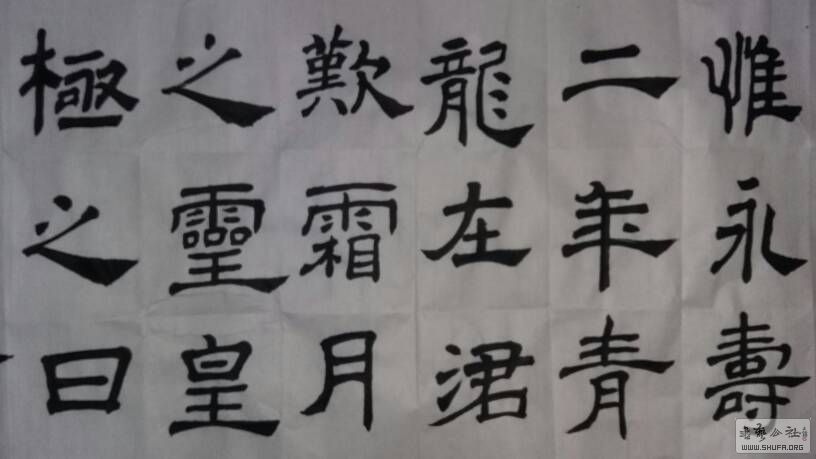 惟永壽
二年青
龍在涒
歎霜月
之靈皇
極之日
書藝公社
WWW.SHUFA.ORG